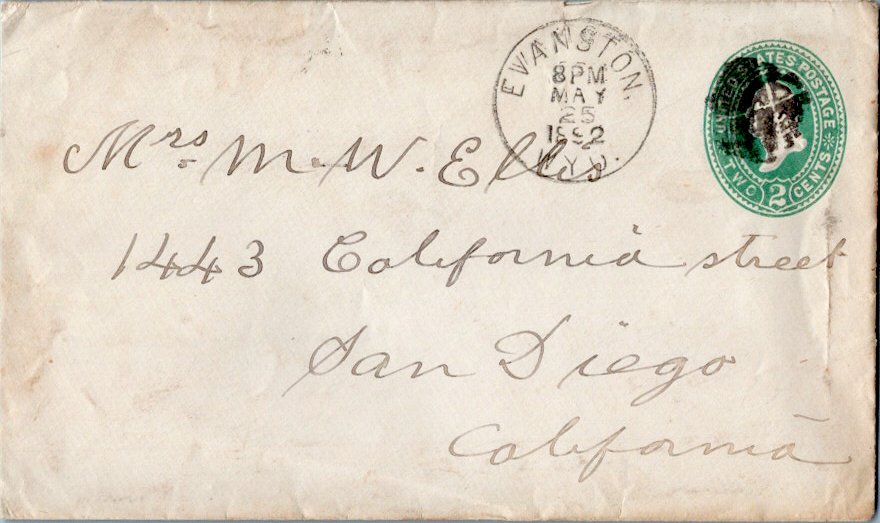 EVANSTON,
8PM
MAY
25
1892
WYO.
UNITED STATES POSTAGE
TWO 2 CENTS
Mrs M. W. Ellis
1443 California street
San Diego
California